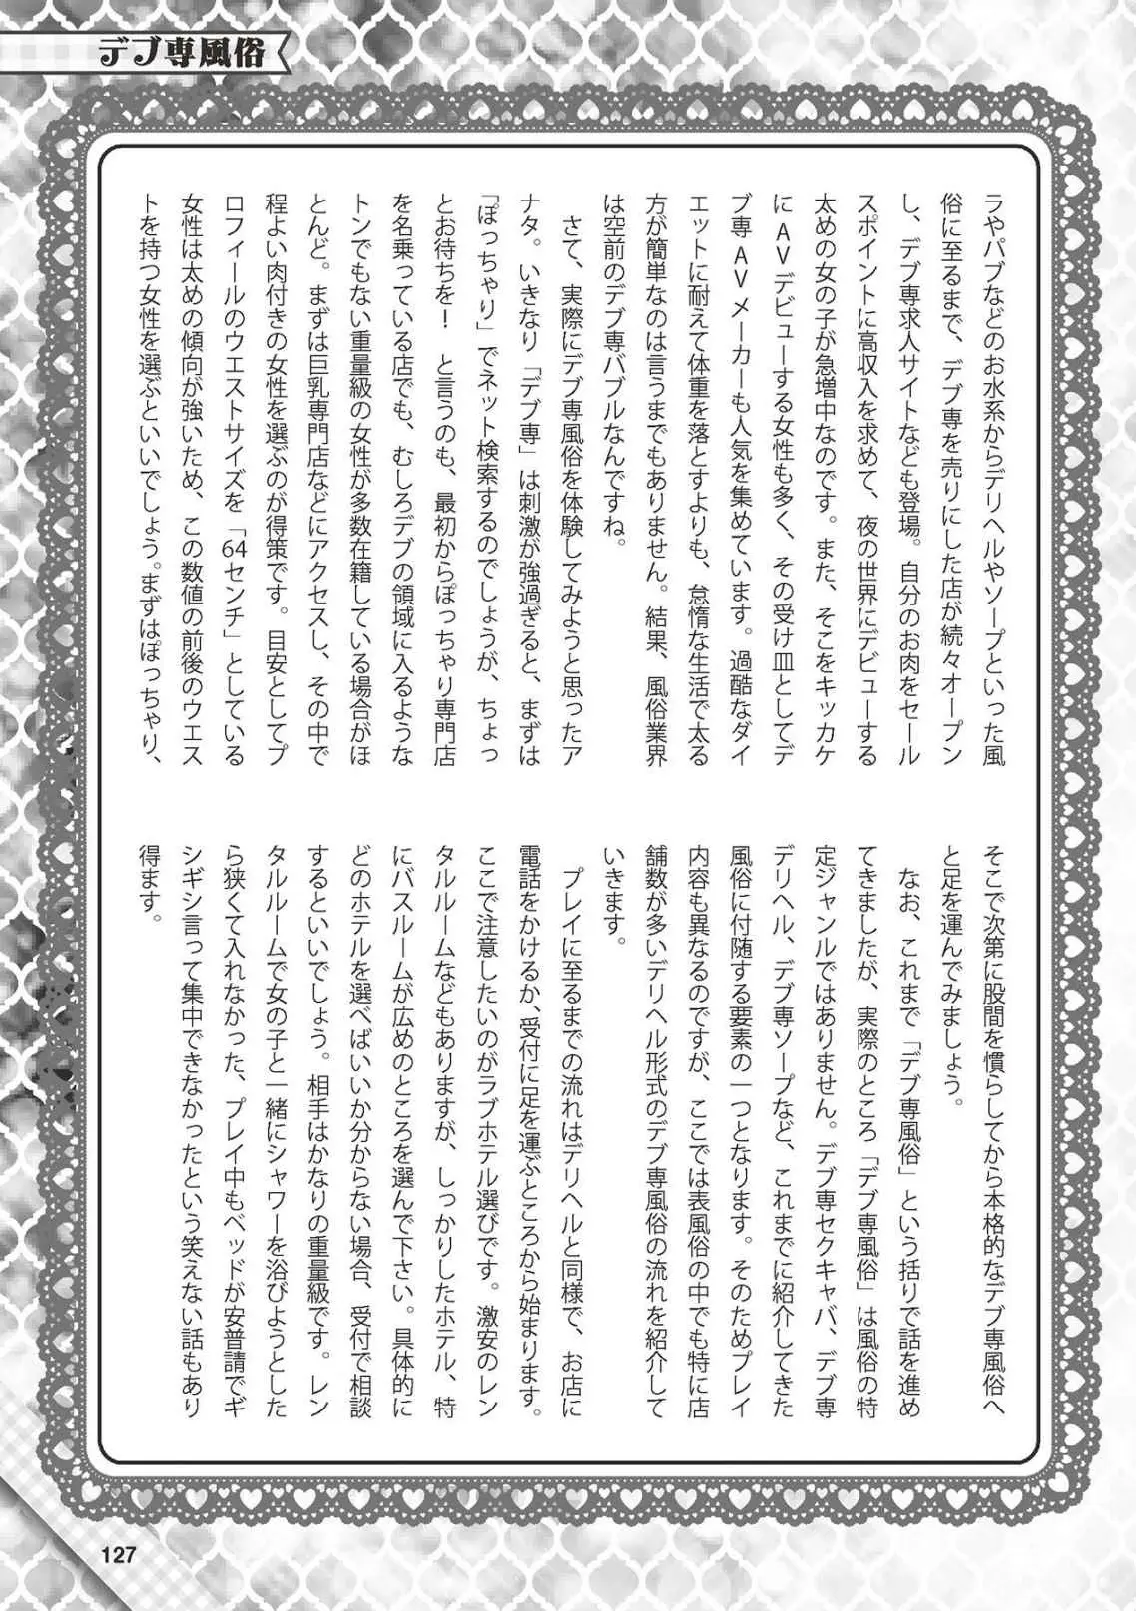 デブ専風俗
ラやパブなどのお水系からデリヘルやソープといった風
俗に至るまで、デブ専を売りにした店が続々オープン
し、デブ専求人サイトなども登場。自分のお肉をセール
スポイントに高収入を求めて、夜の世界にデビューする
太めの女の子が急増中なのです。また、そこをキッカケ
に AV デビューする女性も多く、その受け皿としてデ
ブ専 AV メーカーも人気を集めています。過酷なダイ
エットに耐えて体重を落とすよりも、怠惰な生活で太る
方が簡単なのは言うまでもありません。結果、風俗業界
は空前のデブ専バブルなんですね。
さて、実際にデブ専風俗を体験してみようと思ったア
ナタ。いきなり「デブ専」は刺激が強過ぎると、まずは
「ぽっちゃり」でネット検索するのでしょうが、ちょっ
とお待ちを！　と言うのも、最初からぽっちゃり専門店
を名乗っている店でも、むしろデブの領域に入るような
トンでもない重量級の女性が多数在籍している場合がほ
とんど。まずは巨乳専門店などにアクセスし、その中で
程よい肉付きの女性を選ぶのが得策です。目安としてプ
ロフィールのウエストサイズを「64センチ」としている
女性は太めの傾向が強いため、この数値の前後のウエス
トを持つ女性を選ぶといいでしょう。まずはぽっちゃり、
そこで次第に股間を慣らしてから本格的なデブ専風俗へ
と足を運んでみましょう。
なお、これまで「デブ専風俗」という括りで話を進め
てきましたが、実際のところ「デブ専風俗」は風俗の特
定ジャンルではありません。デブ専セクキャバ、デブ専
デリヘル、デブ専ソープなど、これまでに紹介してきた
風俗に付随する要素の一つとなります。そのためプレイ
内容も異なるのですが、ここでは表風俗の中でも特に店
舗数が多いデリヘル形式のデブ専風俗の流れを紹介して
いきます。
プレイに至るまでの流れはデリヘルと同様で、お店に
電話をかけるか、受付に足を運ぶところから始まります。
ここで注意したいのがラブホテル選びです。激安のレン
タルルームなどもありますが、しっかりしたホテル、特
にバスルームが広めのところを選んで下さい。具体的に
どのホテルを選べばいいか分からない場合、受付で相談
するといいでしょう。相手はかなりの重量級です。レン
タルルームで女の子と一緒にシャワーを浴びようとした
ら狭くて入れなかった、プレイ中もベッドが安普請でギ
シギシ言って集中できなかったという笑えない話もあり
得ます。
127